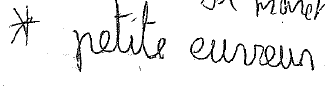 * petite erreur